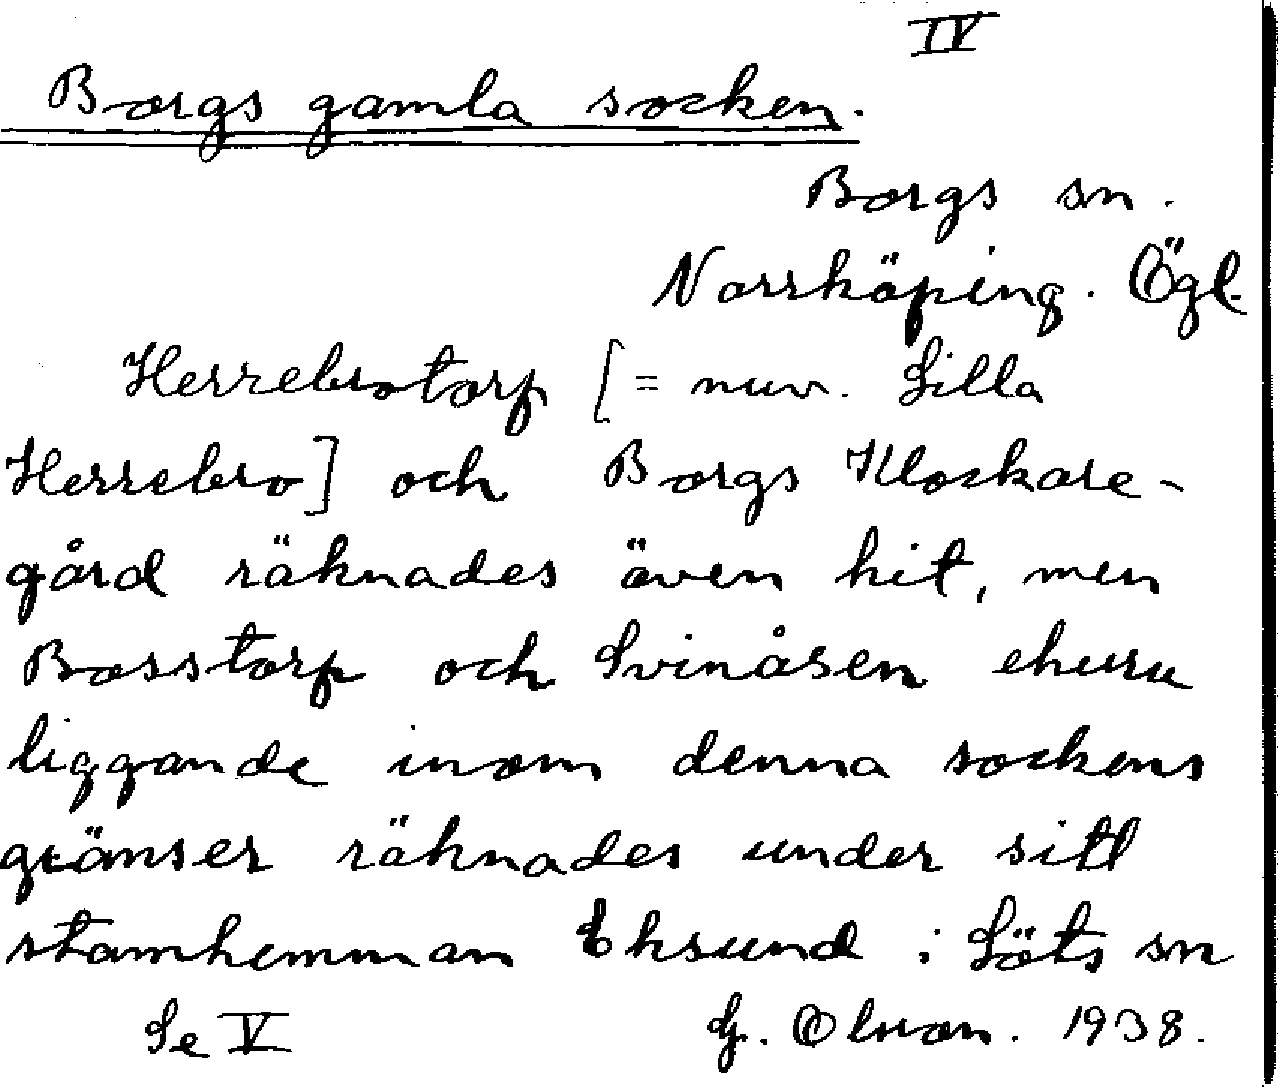 IV
Borgs gamla socken.
Borgs sn.
Norrköping. Ögl.
Herrebrotorp [= nuv. Lilla
Herrebro] och Borgs Klockare-
gård räknades även hit, men
Bosstorp och Svinåsen ehuru
liggande inom denna sockens
gränser räknades under sitt
stamhemman Eksund i Löts sn
Se V
G. Olsson. 1938.